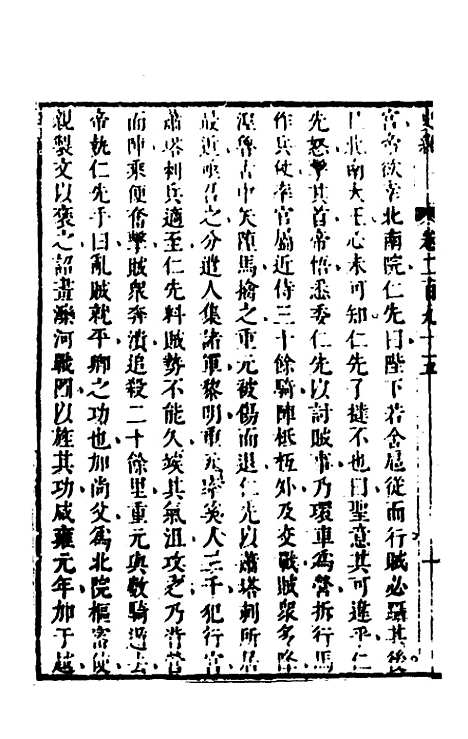 史緯 卷二百九十五 十
宮帝欲幸北南院仁先曰陛下若舍扈從而行賊必躡其後
且北南大王心未可知仁先子撻不也曰聖意其可違乎仁
先怒擊其首帝悟悉委仁先以討賊事乃環車爲營拆行馬
作兵仗率官屬近侍三十餘騎陣柢枑外及交戰賊衆多降
涅魯古中矢墮馬擒之重元被傷而退仁先以蕭塔剌所居
最近亟召之分遣人集諸軍黎明重元率奚人二千犯行宮
蕭塔剌兵適至仁先料賊勢不能久俟其氣沮攻之乃背營
而陣乘便奮擊賊衆奔潰追殺二十餘里重元與數騎遁去
帝執仁先手曰亂賊就平卿之功也加尚父爲北院樞密使
親製文以褒之詔畫灤河戰圖以旌其功咸雍元年加于越